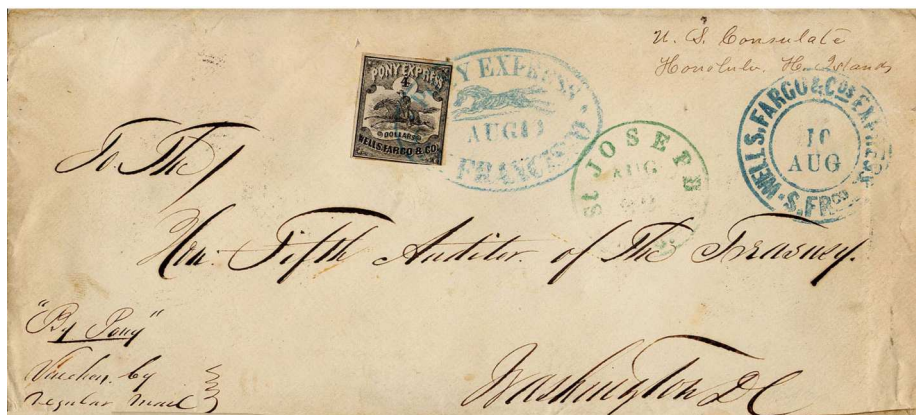 U. S. Consulate
Honolulu. H. Islands
PONY EXPRESS
4
DOLLARS
WELLS, FARGO & CO.
PONY EXPRESS
AUG
FRANCISCO
St JOSEPH
AUG
WELLS, FARGO & COS EXPRESS
AUG
S. FRCO
To The
Hon. Fifth Auditor of The Treasury.
"By Pony"
by
regular mail
Washington DC